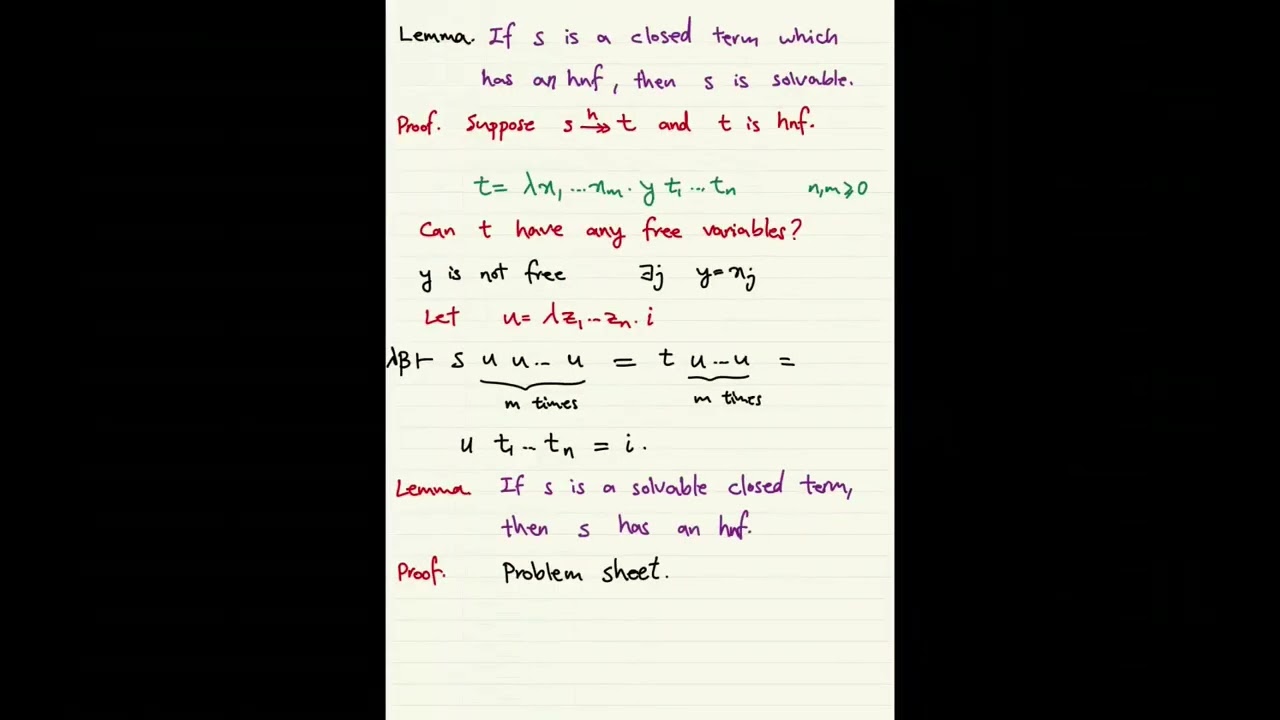 Lemma. If s is a closed term which
has an hnf, then s is solvable.
Proof. Suppose s ↠ʰ t and t is hnf.
t = λx₁...xₘ. y t₁...tₙ n,m ⩾ 0
Can t have any free variables?
y is not free ∃j y = xⱼ
Let u = λz₁...zₙ. i
λβ ⊢ s u u... u = t u...u =
m times m times
u t₁...tₙ = i.
Lemma. If s is a solvable closed term,
then s has an hnf.
Proof. Problem sheet.